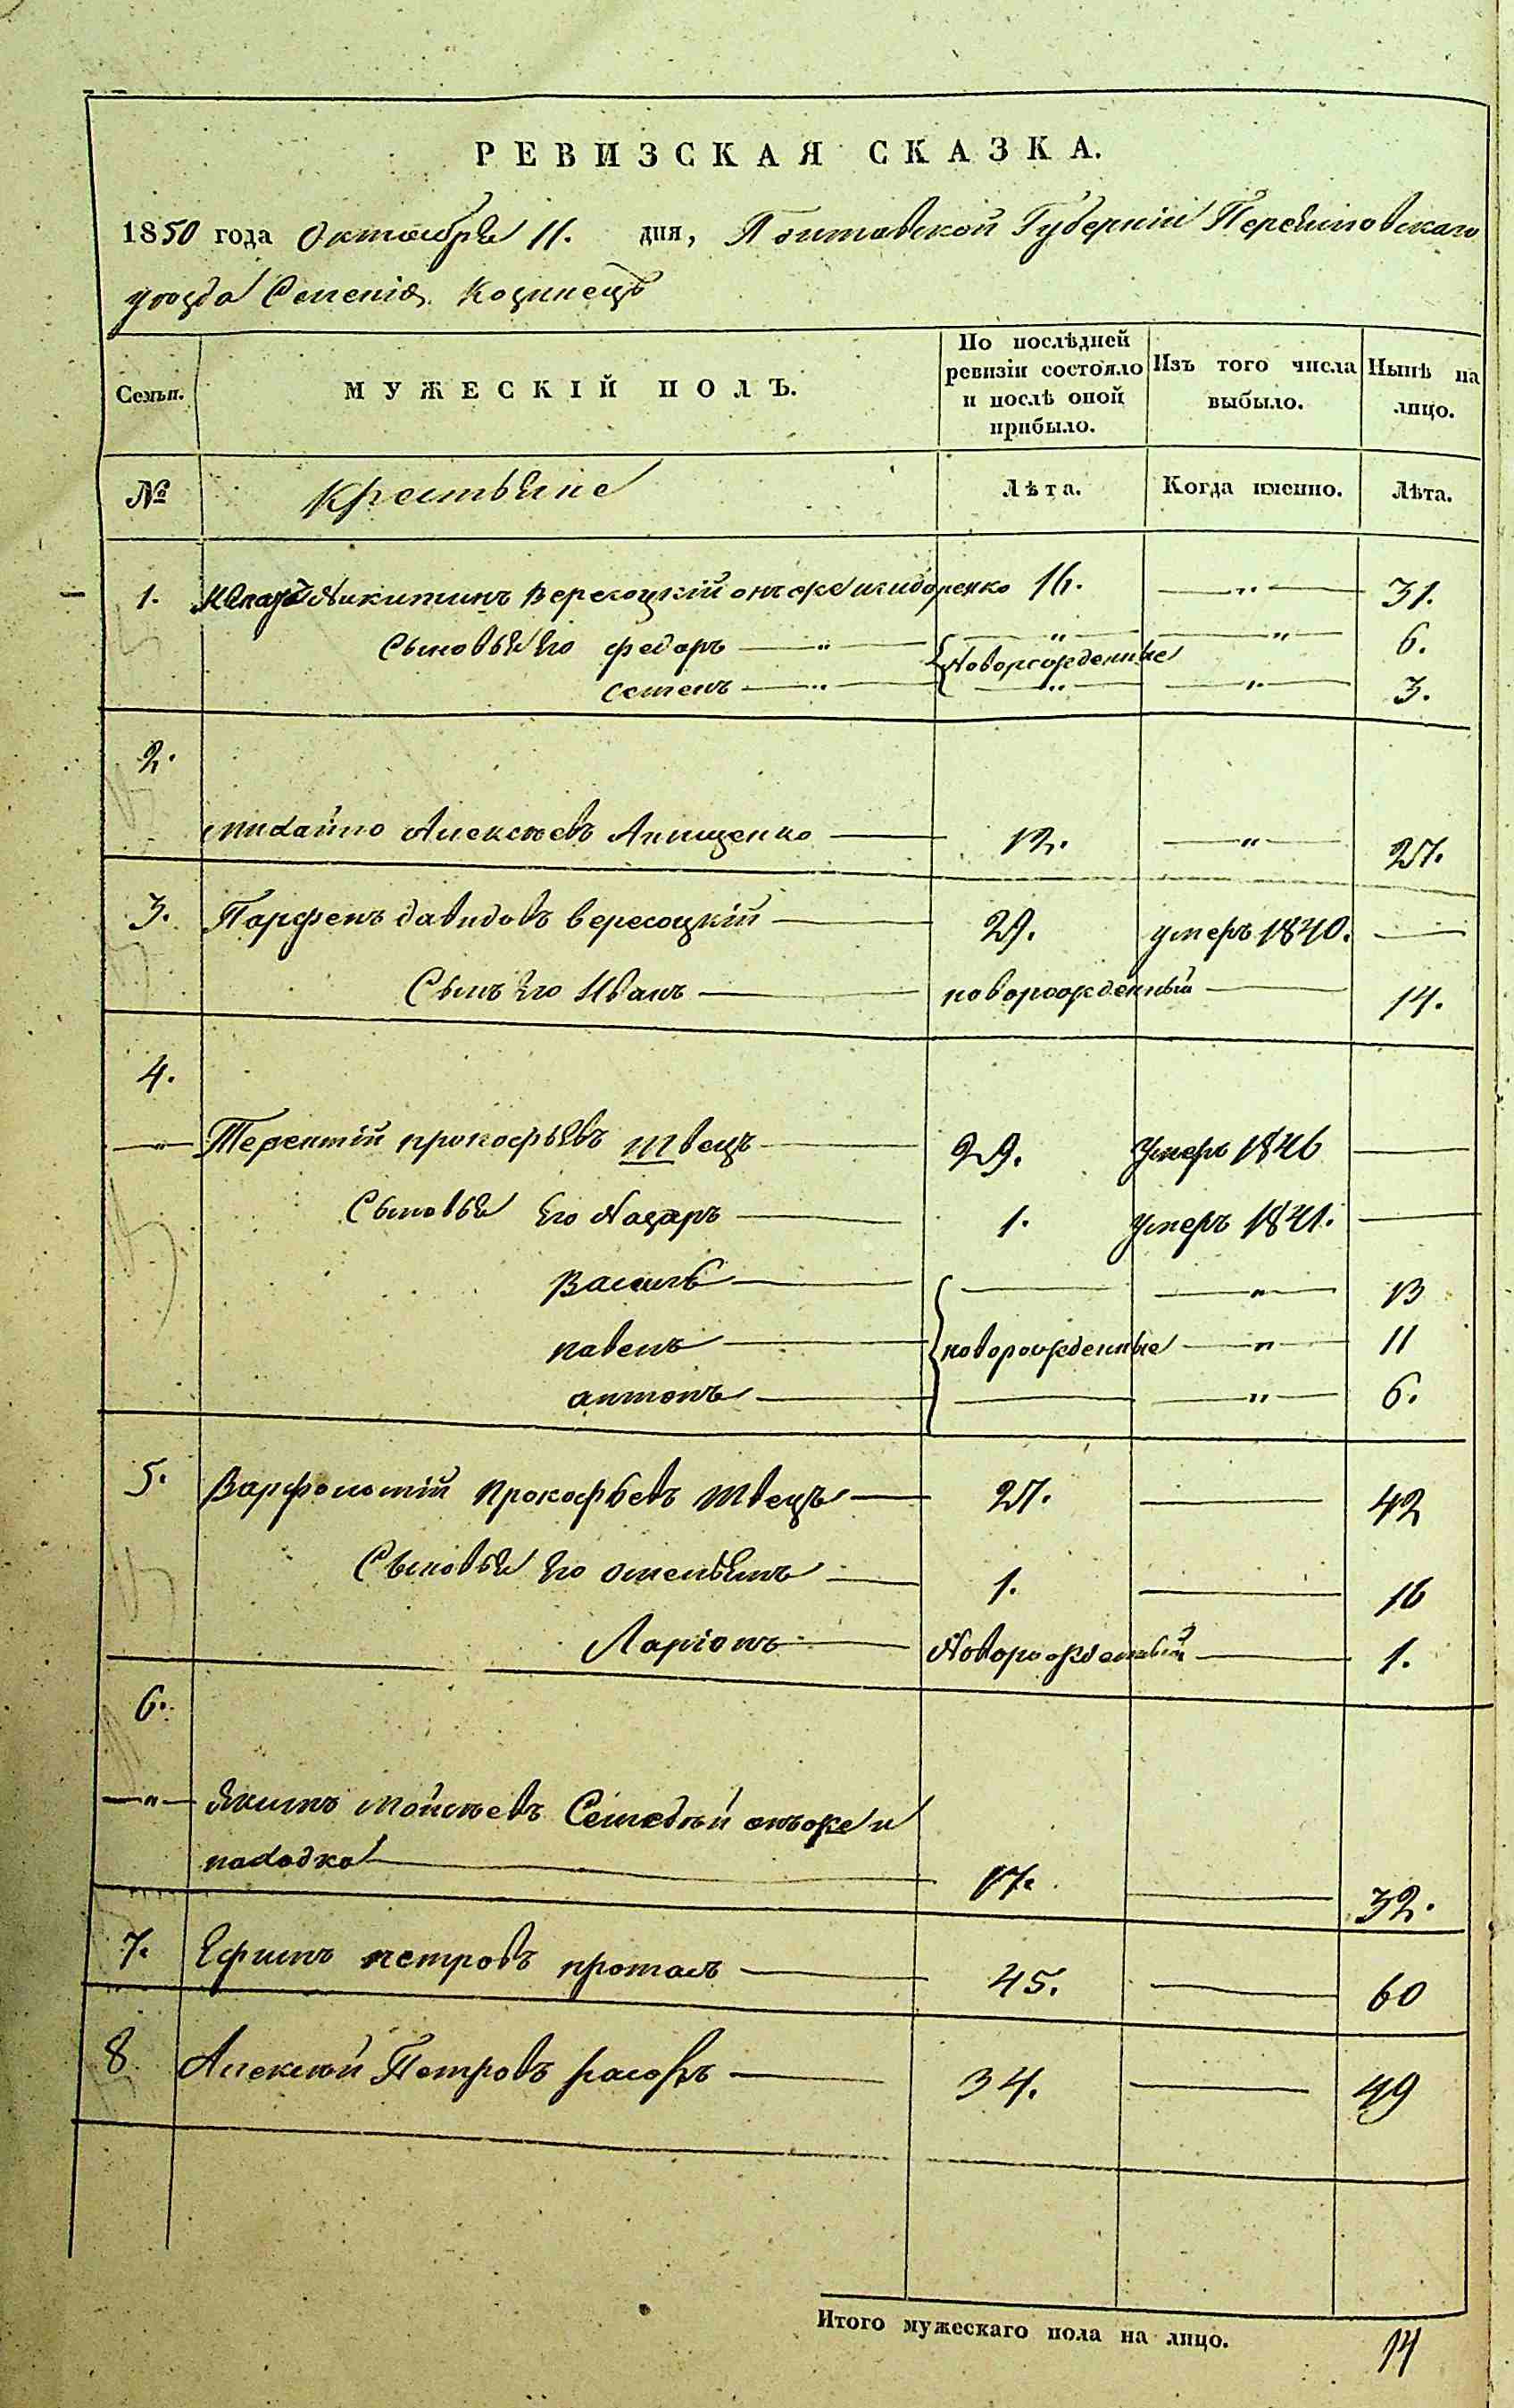 РЕВИЗСКАЯ СКАЗКА.
1850 года Октября 11. дня, Полтавской Губерніи Переяславскаго
уезда Селенія Козинецъ
Семьи. МУЖЕСКІЙ ПОЛЪ. По послѣдней ревизіи состояло и послѣ оной прибыло. Изъ того числа выбыло. Нынѣ на лицо.
№ Крестьяне Лѣта. Когда именно. Лѣта.
1. Никитинъ Вересоцкій онъ же 16. — " — 31.
Сыновья его Федоръ — " — — " — — " — 6.
Новорожденные
Семенъ — " — — " — — " — 3.
2.
Михайло Алексѣевъ Анищенко — 12. — " — 27.
3. Парфенъ Давидовъ Вересоцкій — 29. умеръ 1840. —
Сынъ его Иванъ — новорожденный — 14.
4.
— " — Терентій Прокофьевъ Швецъ — 29. Умеръ 1846 —
Сыновья его Назаръ — 1. Умеръ 1841. —
Василь — — — " — 13
павелъ — новорожденные — " — 11
антонъ — — — " — 6.
5. Варфоломій Прокофьевъ Швецъ — 27. — 42
Сыновья его Омельянъ — 1. — 16
Ларіонъ — Новорожденный — 1.
6.
— " — Якимъ Мойсѣевъ онъ же и
— 17. — 32.
7. Ефимъ петровъ — 45. — 60
8. Алексѣй Петровъ — 34. — 49
Итого мужескаго пола на лицо. 14